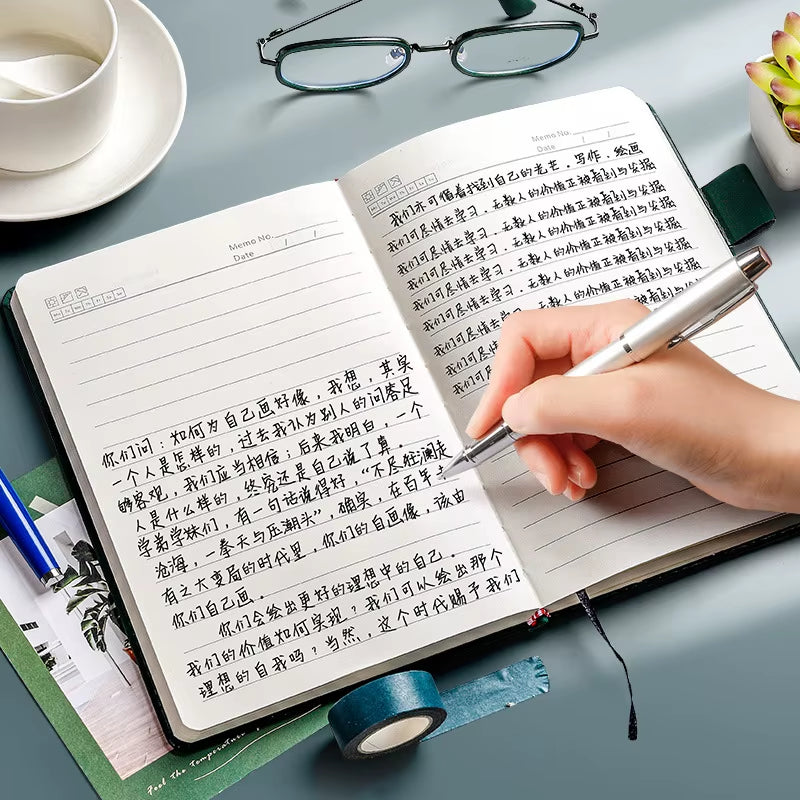 Memo No.
Date / /
你们问：如何为自己画好像，我想，其实
一个人是怎样的，过去我认为别人的问答足
够客观，我们应当相信；后来我明白，一个
人是什么样的，终究还是自己说了算。
学弟学妹们，有一句话说得好，“不尽狂澜走
沧海，一拳天与压潮头”，确实，在百年
有之大变局的时代里，你们的自画像，该由
你们自己画。
你们会绘出更好的理想中的自己。
我们的价值如何实现？我们可以绘出那个
理想的自我吗？当然，这个时代赐予我们
Memo No.
Date / /
我们亦可循着找到自己的光芒，写作、绘画
我们可尽情去学习，无数人的价值正被看到与发掘
我们可尽情去学习，无数人的价值正被看到与发掘
我们可尽情去学习，无数人的价值正被看到与发掘
我们可尽情去学习，无数人的价值正被看到与发掘
我们可尽情去学习，无数人的价值正被看到与发掘
我们可尽情去 被看到与发掘
我们可尽情
我们可尽
Feel the temperature